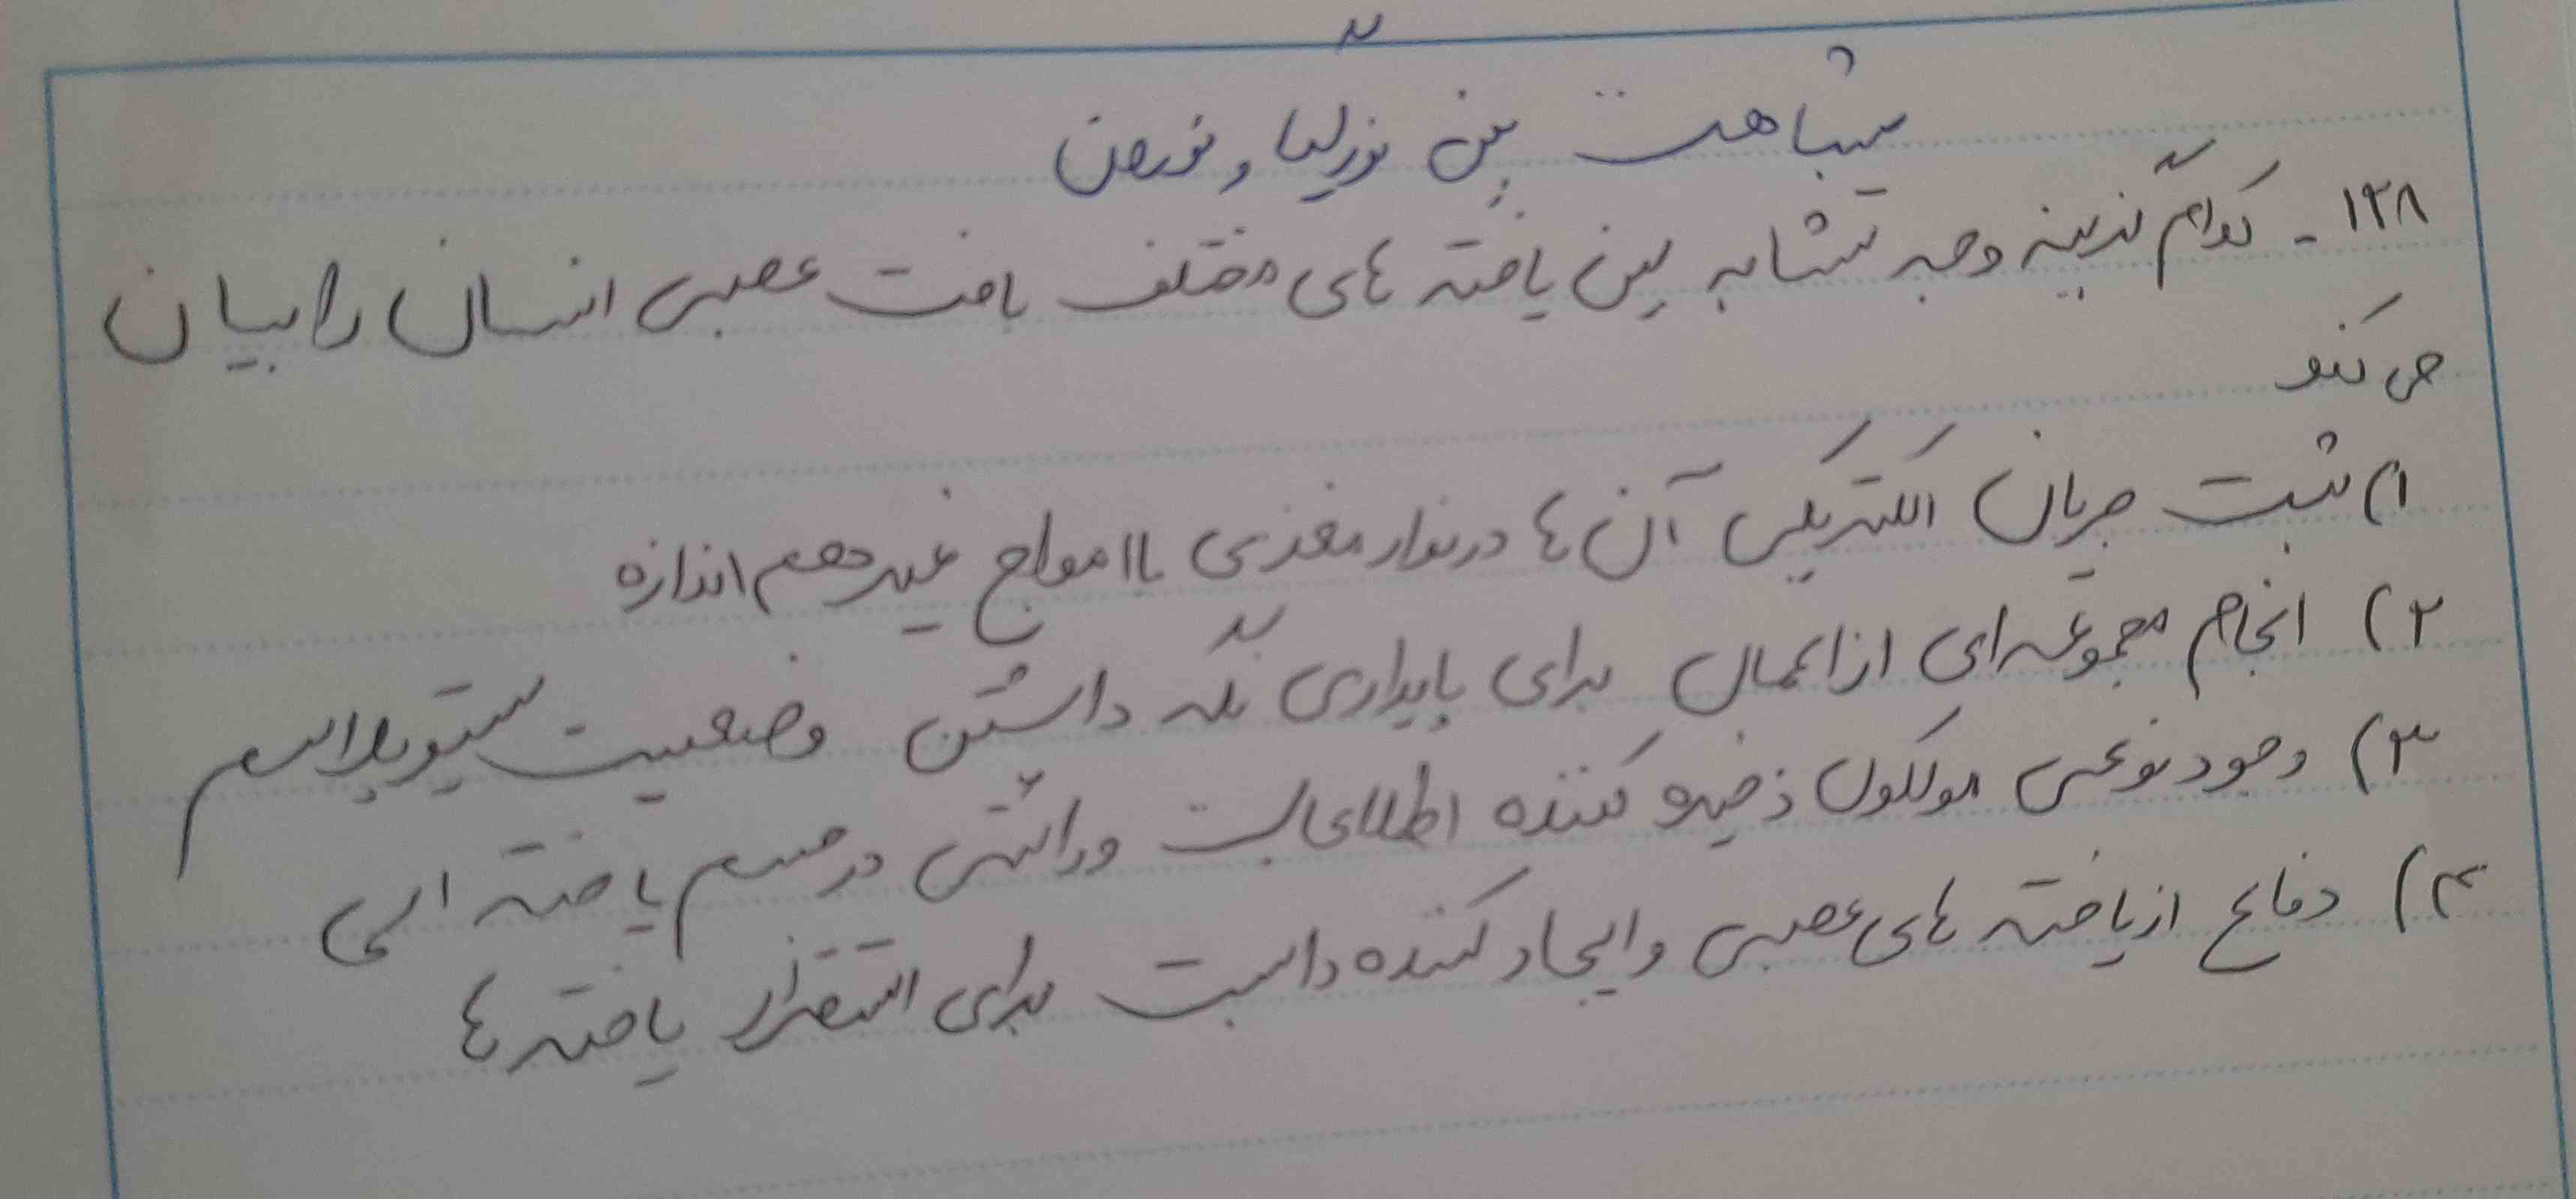 شباهت بین نورگلیا و نورون
۱۲۸ - کدام گزینه وجه تشابه بین یاخته های مختلف بافت عصبی انسان را بیان
می کند
۱) ثبت جریان الکتریکی آن ها در نوار مغزی با امواج غیر هم اندازه
۲) انجام مجموعه ای از اعمال برای پایداری نگه داشتن وضعیت سیتوپلاسم
۳) وجود نوعی مولکول ذخیره کننده اطلاعات وراثتی در جسم یاخته ای
۴) دفاع از یاخته های عصبی و ایجاد کننده داربست برای استقرار یاخته ها